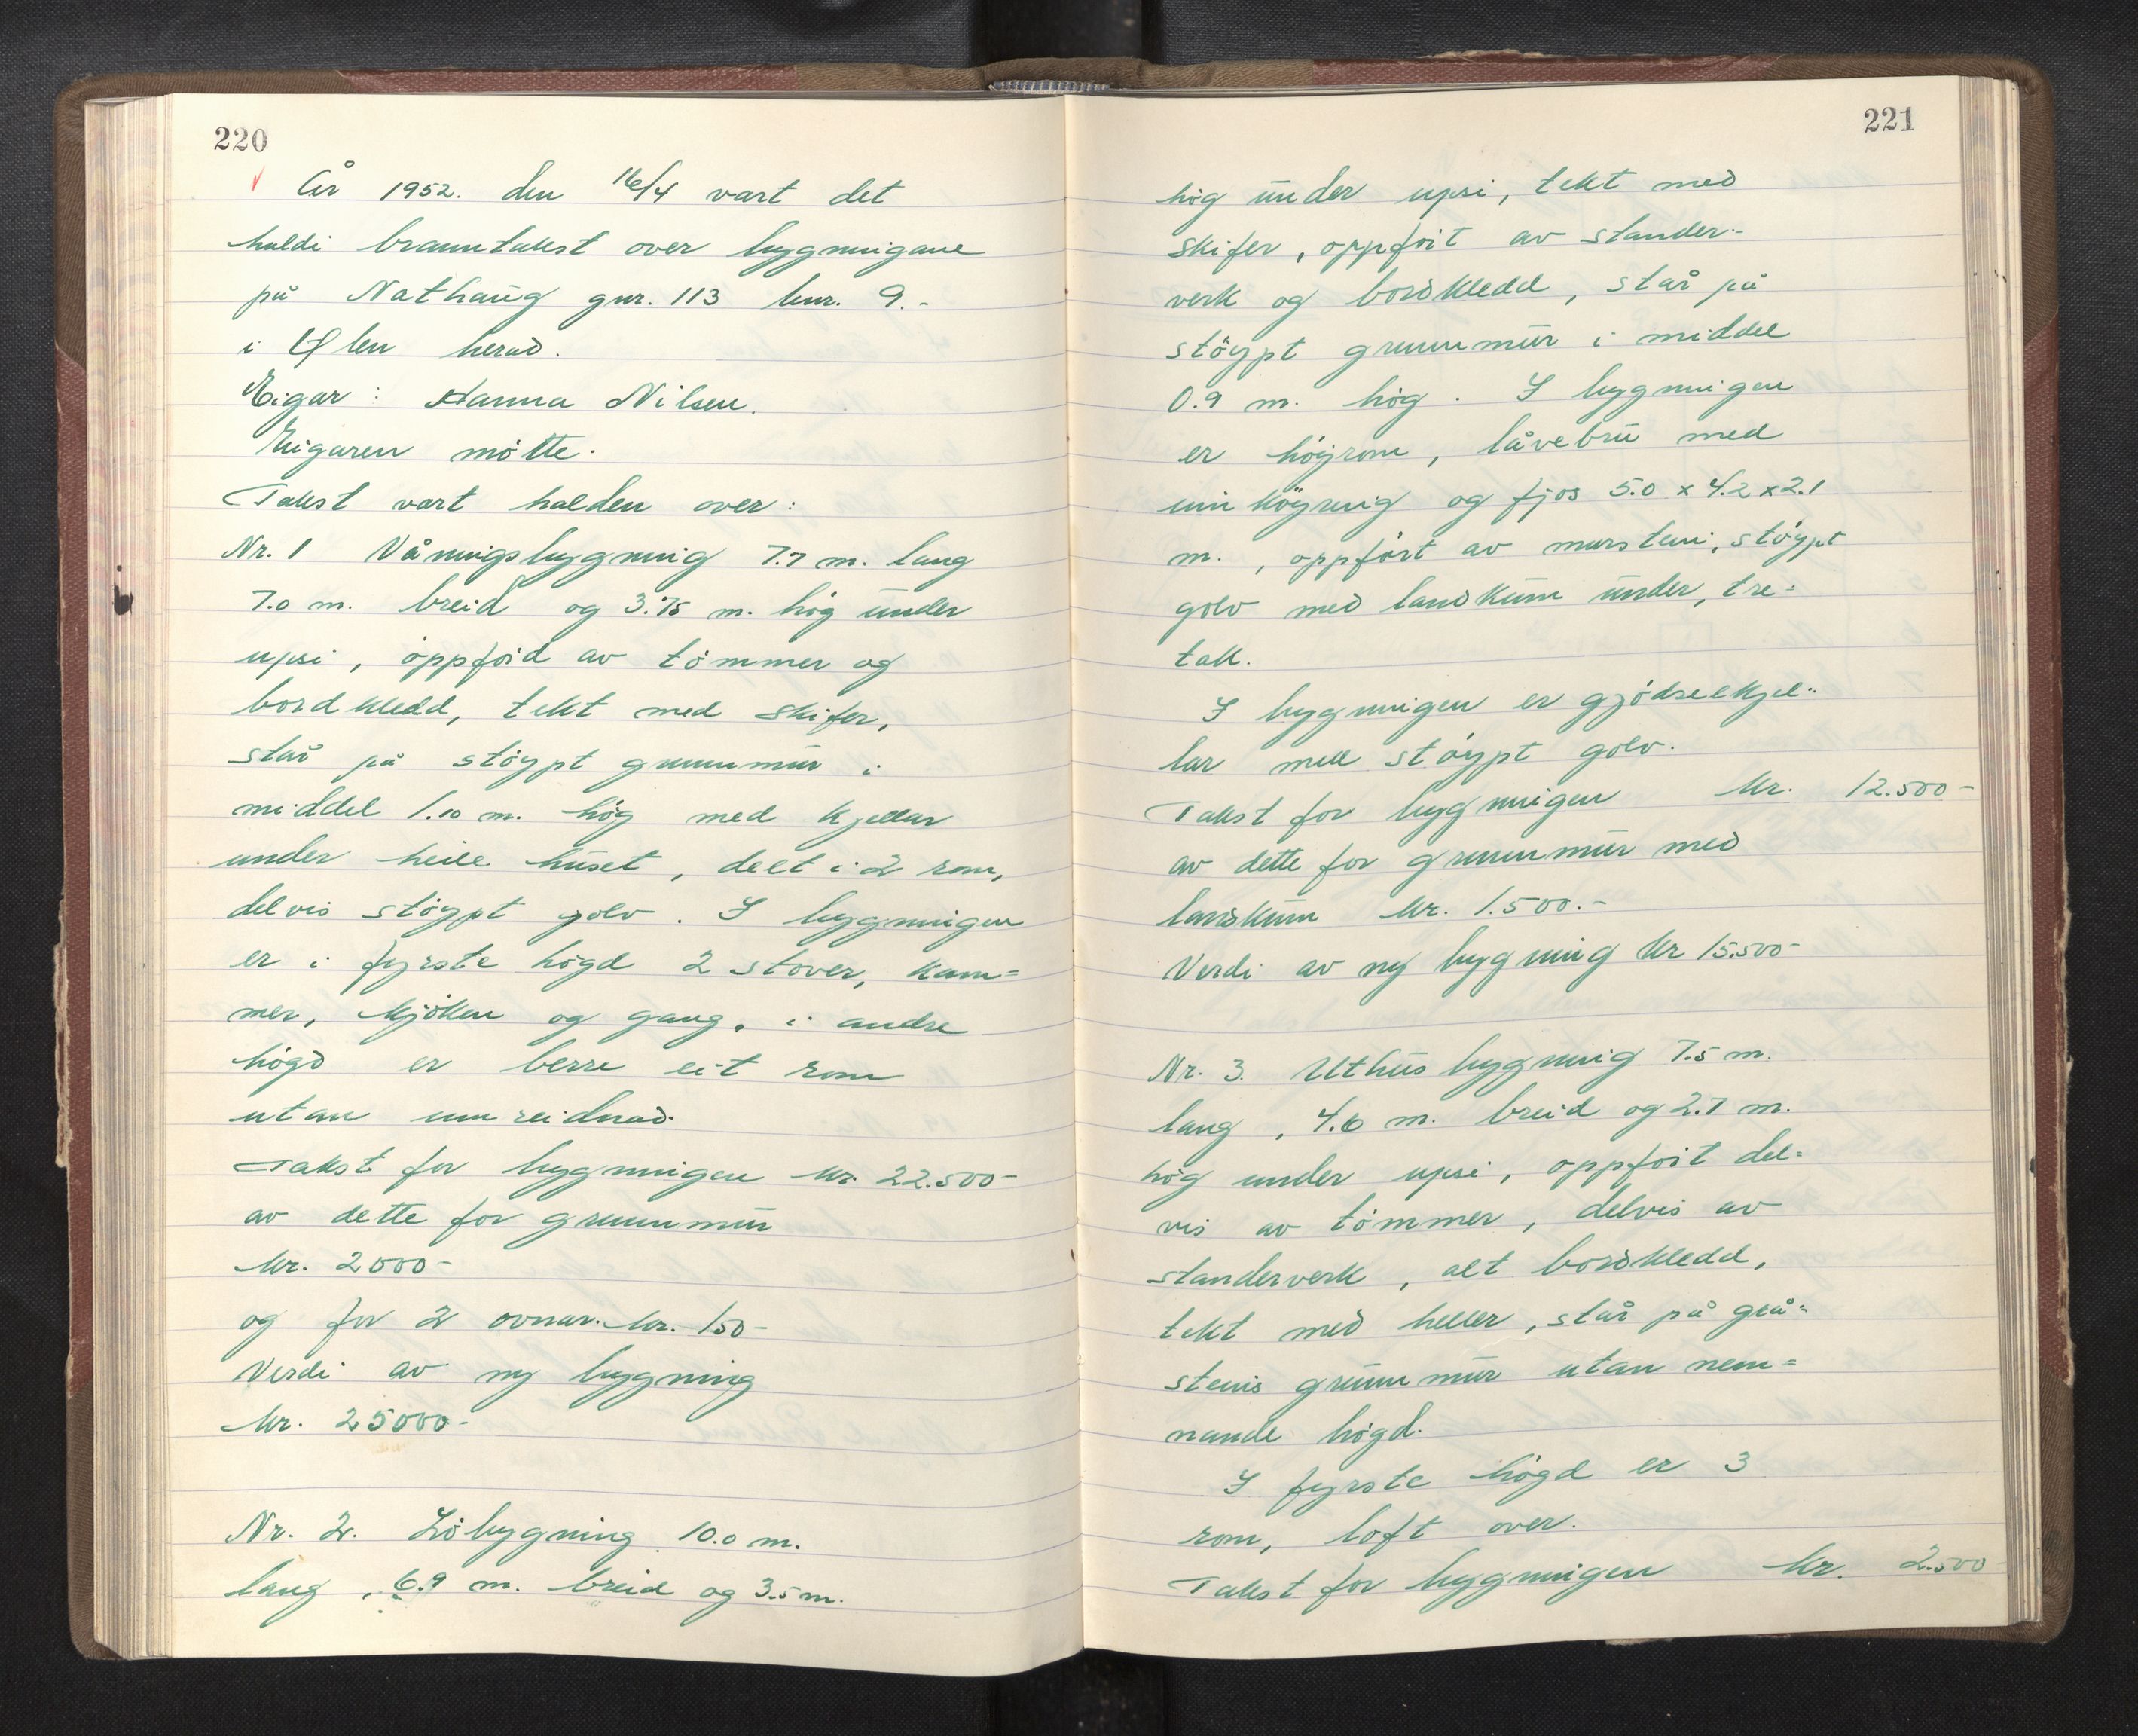 220
År 1952. den 16/4 vart det
haldi branntakst over bygningane
på Nathaug gnr. 113 bnr. 9.-
i Ølen herad.
Eigar: Hanna Nilsen.
Eigaren møtte.
Takst vart halden over:
Nr. 1 Våningsbygning 7.7 m. lang
7.0 m. breid og 3.75 m. høg under
upsi, oppførd av tømmer og
bordkledd, tekt med skifer,
står på støypt grunnmur i
middel 1.10 m. høg med kjellar
under heile huset, delt i 2 rom,
delvis støypt golv. I bygningen
er i fyrste høgd 2 stover, kam=
mer, kjøken og gang. i andre
høgd er berre eit rom
utan innreidnad.
Takst for bygningen kr. 22.500-
av dette for grunnmur
kr. 2000-
og for 2 ovnar. kr. 150-
Verdi av ny bygning
kr. 25000-
Nr. 2. Løbygning 10.0 m.
lang, 6.9 m. breid og 3.5 m.
221
høg under upsi, tekt med
skifer, oppført av stander-
verk og bordkledd, står på
støypt grunnmur i middel
0.9 m. høg. I bygningen
er høyrom, låvebru med
innkøyring og fjos 5.0 x 4.2 x 2.1
m., oppført av murstein, støypt
golv med landkum under, tre-
tak.
I bygningen er gjødselkjel-
lar med støypt golv.
Takst for bygningen kr. 12.500-
av dette for grunnmur med
landkum kr. 1.500.-
Verdi av ny bygning kr 15.500-
Nr. 3. Uthusbygning 7.5 m.
lang, 4.6 m. breid og 2.7 m.
høg under upsi, oppført del=
vis av tømmer, delvis av
standerverk, alt bordkledd,
tekt med heller, står på grå=
steins grunnmur utan nem=
nande høgd.
I fyrste høgd er 3
rom, loft over.
Takst for bygningen kr. 2.500-